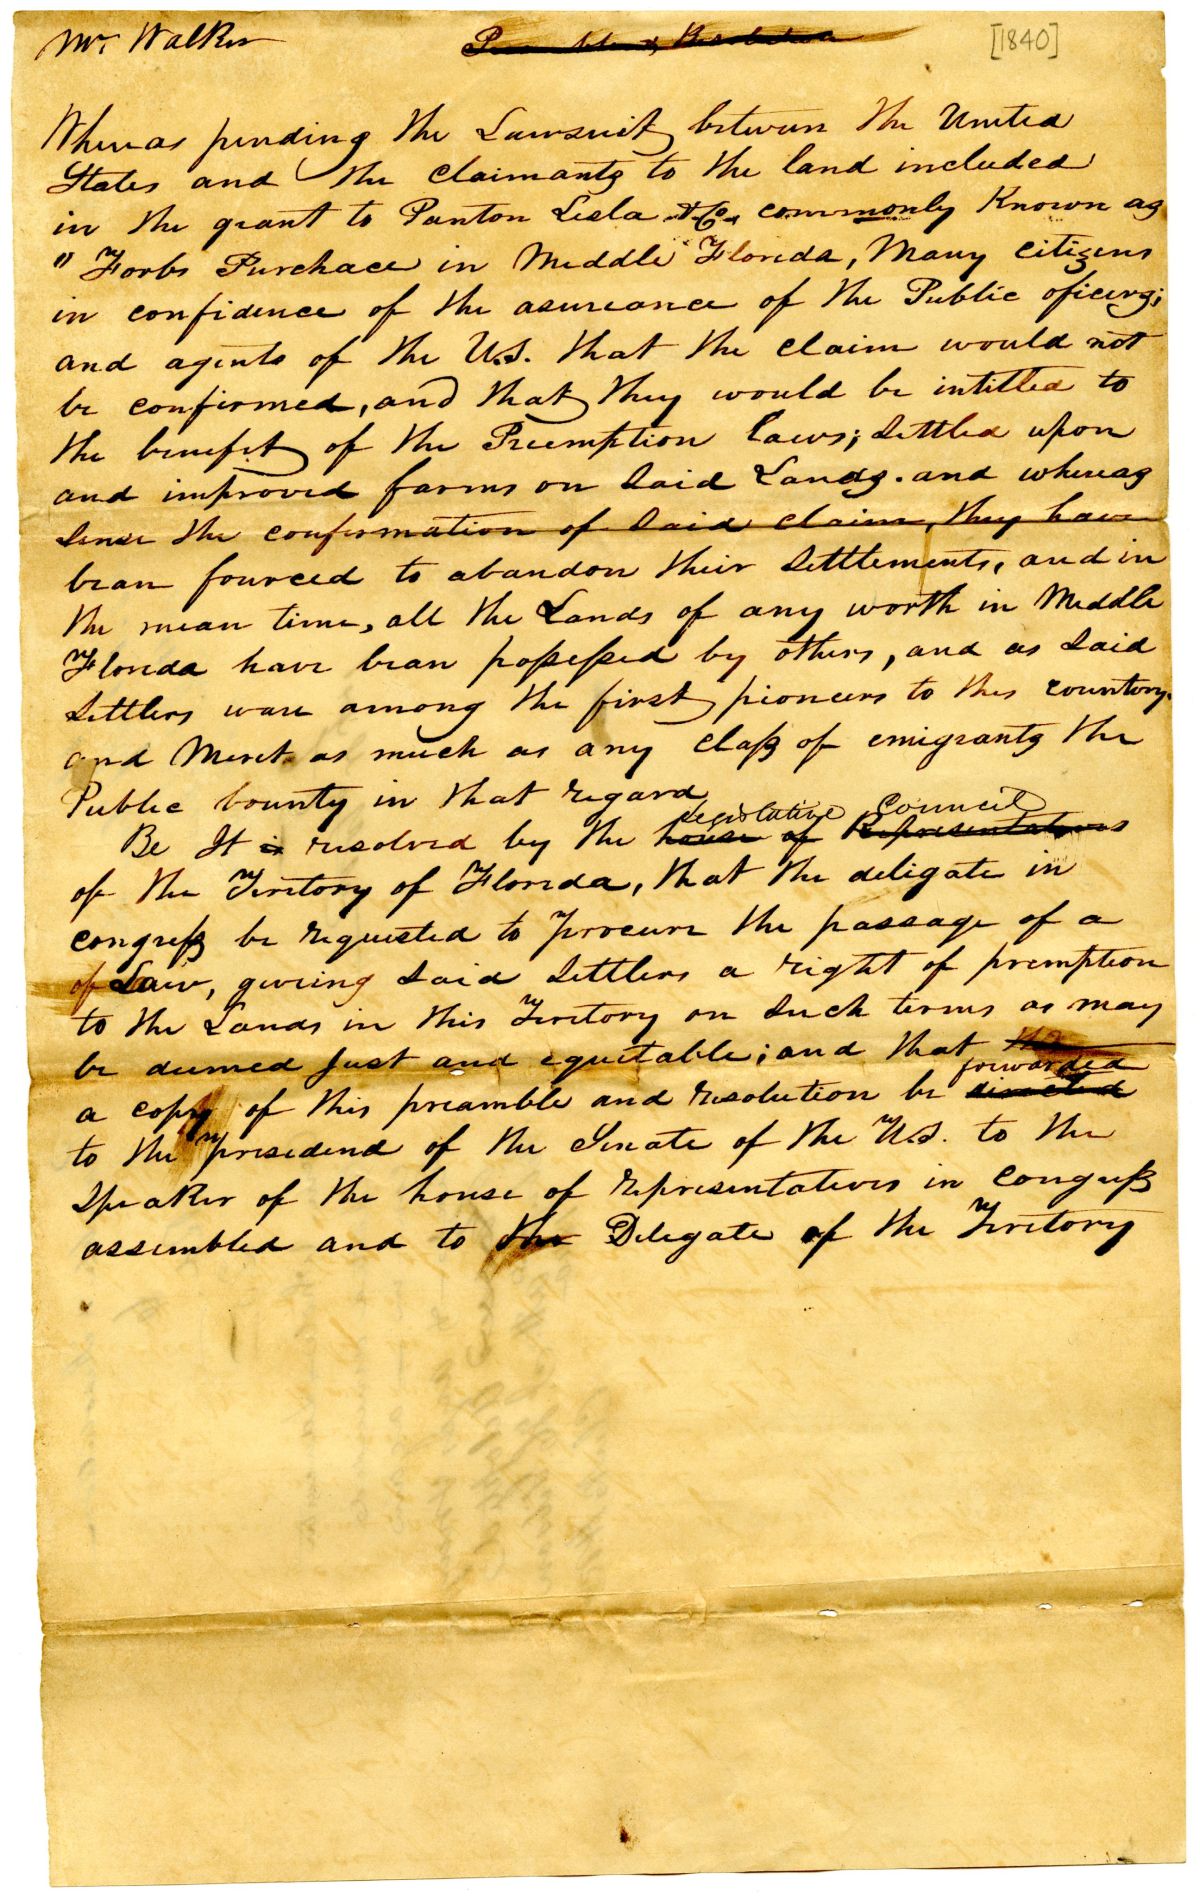 Mr. Walker Preamble & Resolution [1840]
Whereas pending the Lawsuit between the United
States and the claimants to the land included
in the grant to Panton Lesla & Co. commonly Known as
" Forbs Purchace in Middle Florida, Many citizens
in confidence of the asureance of the Public oficers;
and agents of the U.S. that the claim would not
be confirmed, and that they would be intitled to
the benefit of the Preemption laws; settled upon
and improved farms on said Lands. and whereas
sense the confirmation of said claim, they have
bean fourced to abandon their settlements, and in
the mean time, all the Lands of any worth in Middle
Florida have bean possessed by others, and as said
settlers ware among the first pioneers to this countory.
and Merit as much as any class of emigrants the
Public bounty in that regard
Legislative Council
Be It is resolved by the house of Representatives
of the Teritory of Florida, that the deligate in
congress be requested to procure the passage of a
of Law, giveing said settlers a right of premption
to the Lands in this Teritory on such terms as may
be deemed Just and equitable; and that the
forwarded
a copy of this preamble and resolution be directed
to the presedend of the Senate of the U.S. to the
speaker of the house of representatives in congress
assembled and to the Delegate of the Teritory